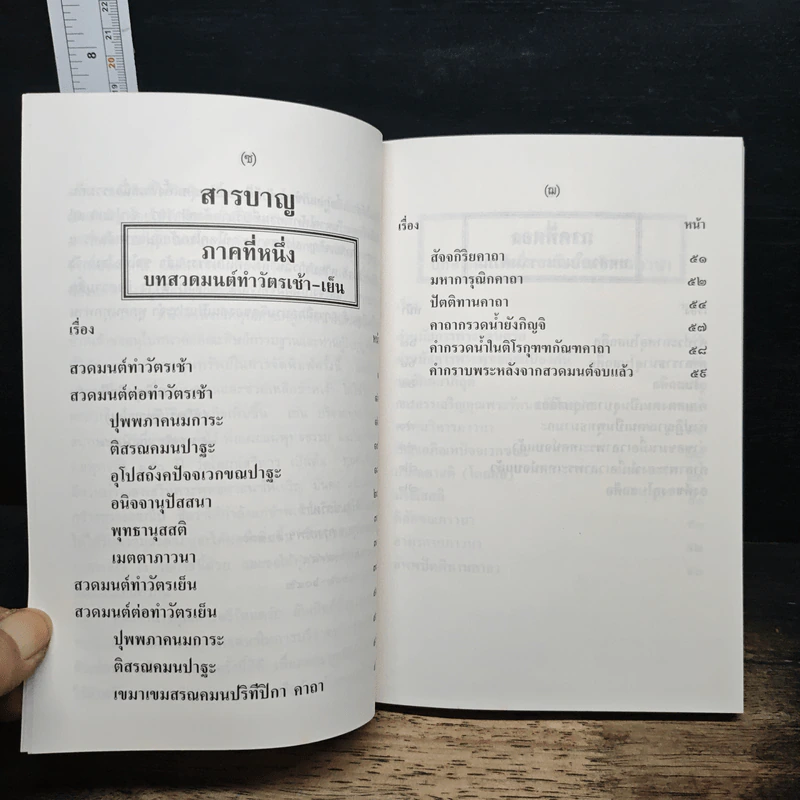 (ซ)
สารบาญ
ภาคที่หนึ่ง
บทสวดมนต์ทำวัตรเช้า-เย็น
เรื่อง
สวดมนต์ทำวัตรเช้า
สวดมนต์ต่อทำวัตรเช้า
ปุพพภาคนมการะ
ติสรณคมนปาฐะ
อุโปสถังคปัจจเวกขณปาฐะ
อนิจจานุปัสสนา
พุทธานุสสติ
เมตตาภาวนา
สวดมนต์ทำวัตรเย็น
สวดมนต์ต่อทำวัตรเย็น
ปุพพภาคนมการะ
ติสรณคมนปาฐะ
เขมาเขมสรณคมนปริทีปิกา คาถา
(ฌ)
เรื่อง หน้า
สัจจกิริยคาถา ๕๑
มหาการุณิกคาถา ๕๒
ปัตติทานคาถา ๕๔
คาถากรวดน้ำยังกิญจิ ๕๗
คำกรวดน้ำในติโรกุฑฑกัณฑคาถา ๕๘
คำกราบพระหลังจากสวดมนต์จบแล้ว ๕๙
8
22
21
20
19